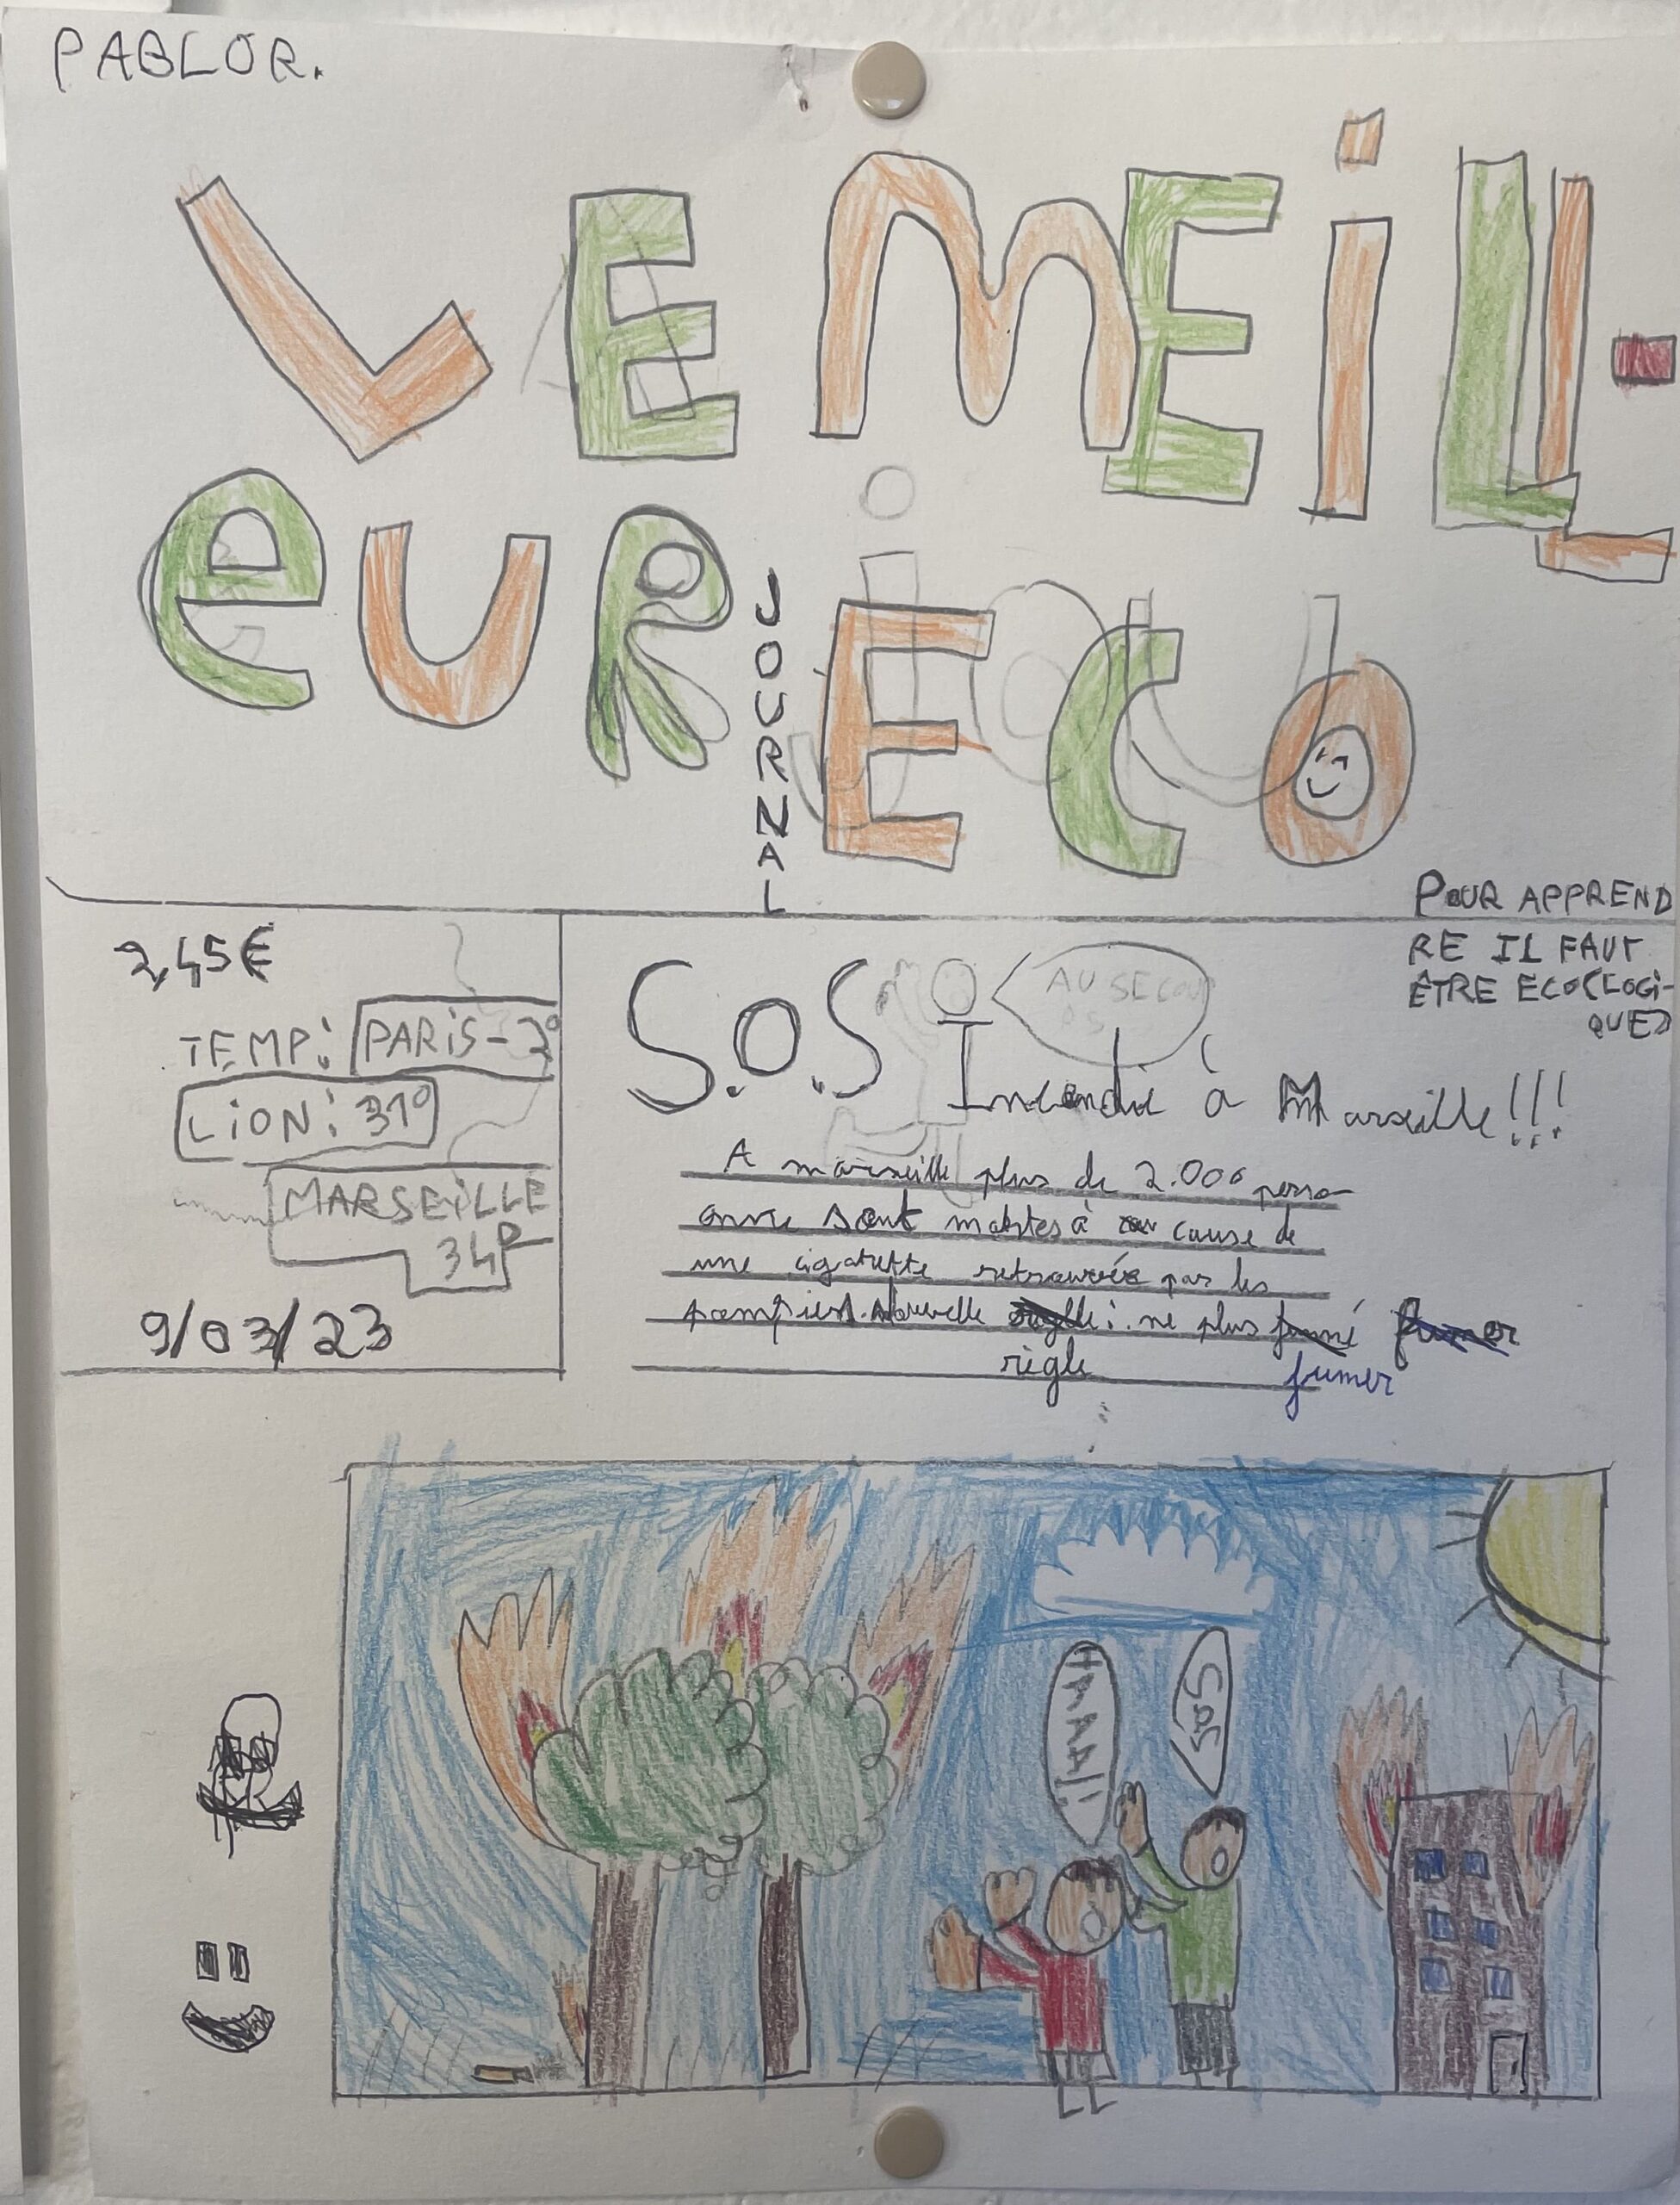 PABLO R.
LE MEILL-
eUR JOURNAL ECO
POUR APPREND
RE IL FAUT
ÊTRE ECO(LOGI-
QUE)
2,45€
TEMP: PARIS-2°
LION: 31°
MARSEILLE
34°
9/03/23
S.O.S
AU SECOU
RS
Incendie à Marseille!!!
A marseille plus de 2.000 perso-
onne sont mortes à cause de
une cigarette retrouvée par les
pompiers. Nouvelle règle: ne plus fumer
HAAA!!
SOS